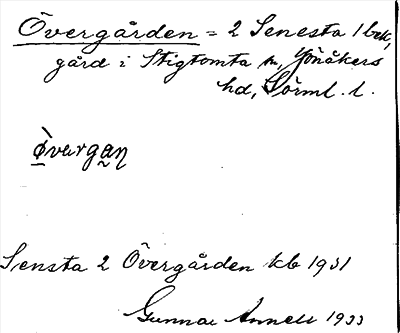 Övergården = 2 Senesta 1 bek,
gård i Stigtomta sn, Jönåkers
hd, Sörml. l.
Sensta 2 Övergården kb 1931
Gunnar Annell 1933